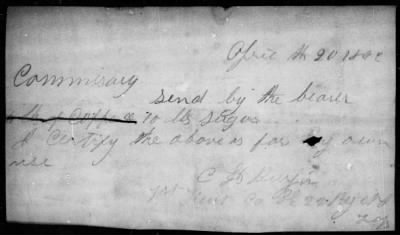 April th 20 1862
Commisary
send by the bearer
10 lbs sugar
I Certify the above as for my own
use
C
1st Lieut Co 22 Regt